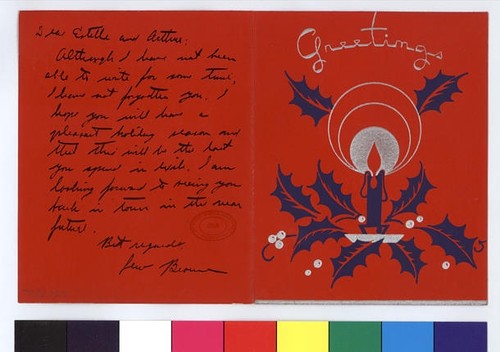 Dear Estelle and Arthur:
Although I have not been
able to write for some time,
I have not forgotten you. I
hope you will have a
pleasant holiday season and
that this will be the last
you spend in exile. I am
looking forward to seeing you
back in town in the near
future.
Best regards
Greetings